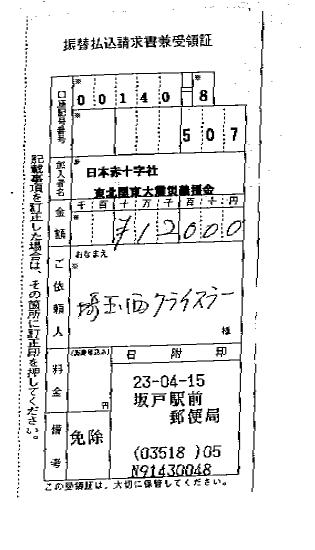 振替払込請求書兼受領証
口座記号番号
※
00140 8
※
507
加入者名
※
日本赤十字社
東北関東大震災義援金
金額
千百十万千百十円
※
¥12000
ご依頼人
おなまえ
※
埼玉西クライスラー
様
料金
(消費税込み)
円
日附印
23-04-15
坂戸駅前
郵便局
(03518 )05
N91430048
備考
免除
記載事項を訂正した場合は、その箇所に訂正印を押してください。
この受領証は、大切に保管してください。